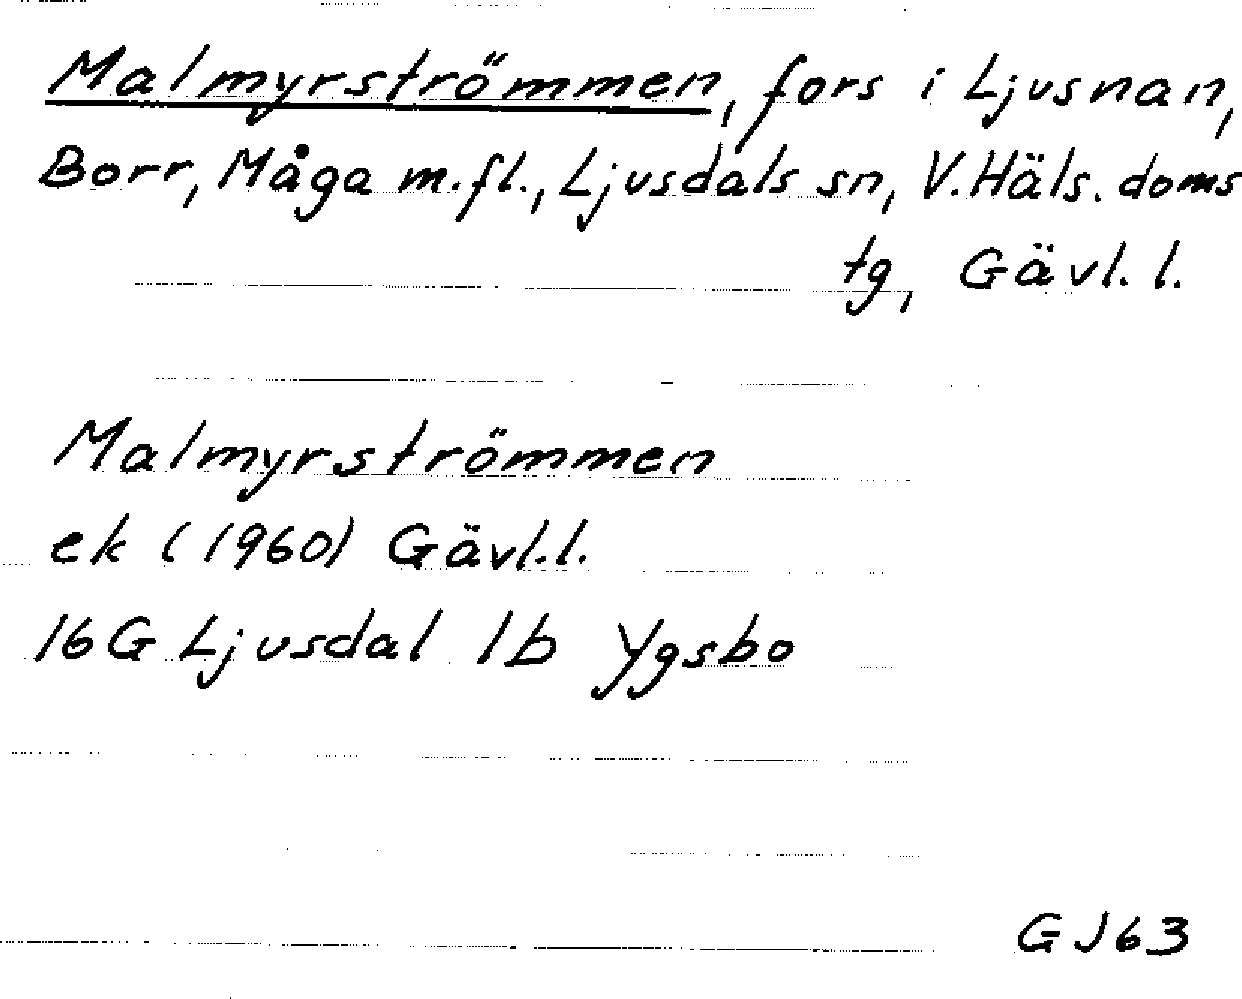 Malmyrströmmen, fors i Ljusnan,
Borr, Måga m.fl., Ljusdals sn, V. Häls. doms
tg, Gävl. l.
Malmyrströmmen
ek (1960) Gävl. l.
16G Ljusdal 1b Ygsbo
GJ63